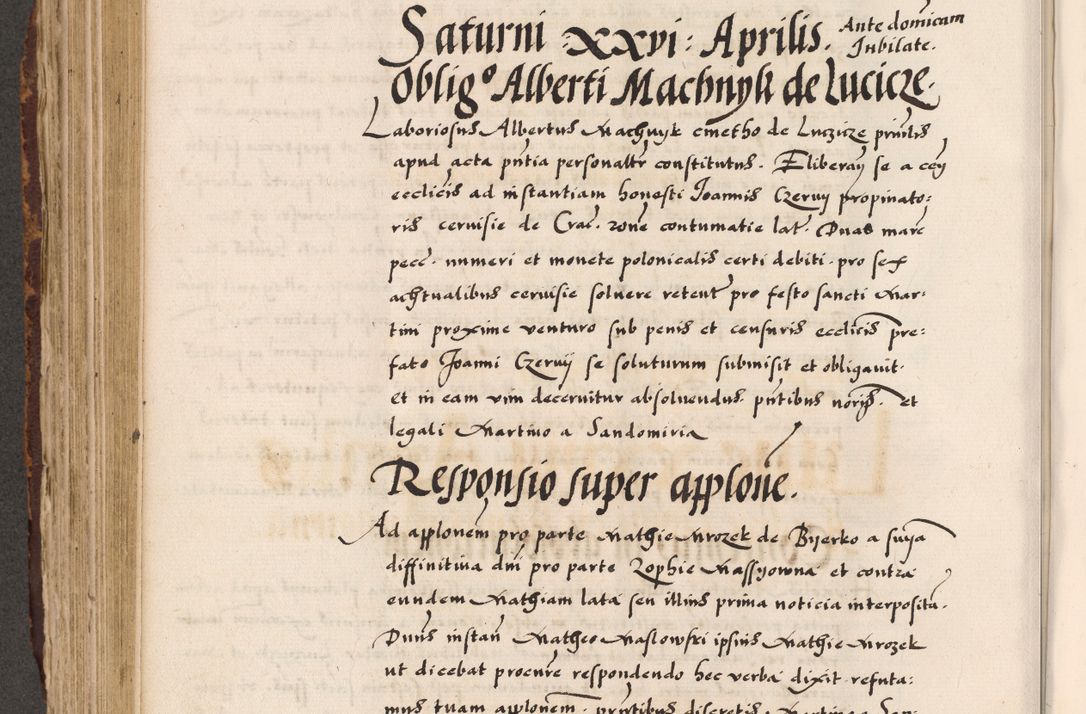 Saturni xxvi: Aprilis. Ante domīcam
Jubilate.
Obligᵒ Alberti Machnyk de Lucicze.
Laboriosus Albertus Machnyk cmetho de Luczicze
apud acta pn̄tia personaltr̄ constitutus. Eliberan̄ se a cen̄
ecclicis ad instantiam honesti Joannis Czervij propinato:
ris cervisie de Crac̄. ron̄e contumatie lat̄. Duas marc̄
pecc̄. numeri et monete polonicalis certi debiti. pro sex
achtualibus cervisie solvere retent̄ pro festo sancti Mar:
tini proxime venturo sub penis et censuris ecclicis pre:
fato Joanni Czervij se soluturum submisit et obligavit.
Et in eam vim decernitur absolvendus. pn̄tibus noris. et
legali Martino a Sandomiria
Responsio super applon̄e.
Ad applon̄em pro parte Mathie Mrozek de Bijerko a sn̄ia
diffinitiva dn̄i pro parte Zophie Massyowna et contra
eundem Mathiam lata seu illius prima noticia interposita.
Dnūs instan̄ Matheo Maslowski ipsius Mathie Mrozek
ut dicebat procur̄e respondendo hec verba dixit. refuta:
mus tuam applon̄em. pn̄tibus discretis Martino a San: